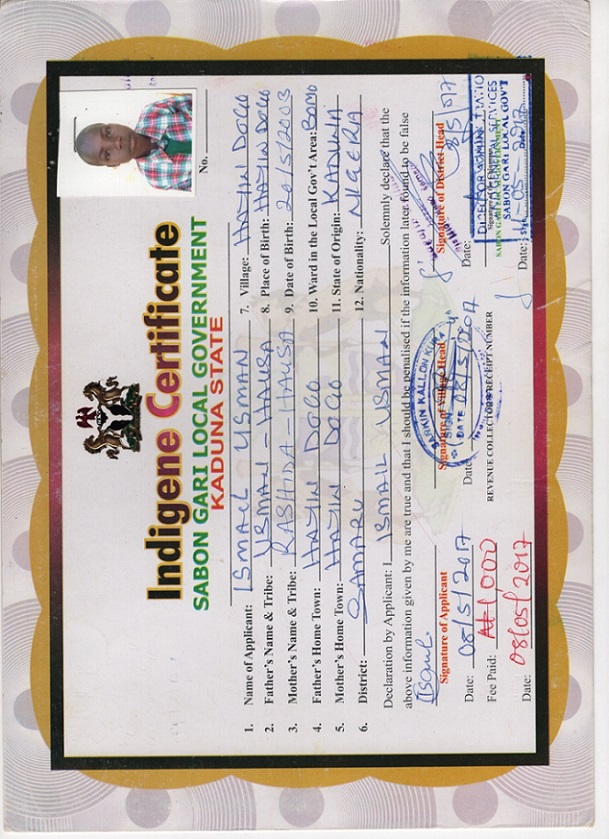 Indigene Certificate
SABON GARI LOCAL GOVERNMENT
KADUNA STATE
No.
1. Name of Applicant: ISMAIL USMAN
2. Father's Name & Tribe: USMAN - HAUSA
3. Mother's Name & Tribe: RASHIDA - HAUSA
4. Father's Home Town: HAYIN DOGO
5. Mother's Home Town: HAYIN DOGO
6. District: SAMARU
7. Village: HAYIN DOGO
8. Place of Birth: HAYIN DOGO
9. Date of Birth: 20/5/2003
10. Ward in the Local Gov't Area: BOMO
11. State of Origin: KADUNA
12. Nationality: NIGERIA
Declaration by Applicant: I ISMAIL USMAN Solemnly declare that the
above information given by me are true and that I should be penalised if the information later found to be false
Signature of Applicant
Date: 08/5/2017
Fee Paid: ₦1,000
Date: 08/05/2017
Signature of Village Head
Date: 08/5/2017
REVENUE COLLECTOR'S RECEIPT NUMBER
Signature of District Head
Date: 8/5/2017
SABON GARI LOCAL GOV'T
Date: